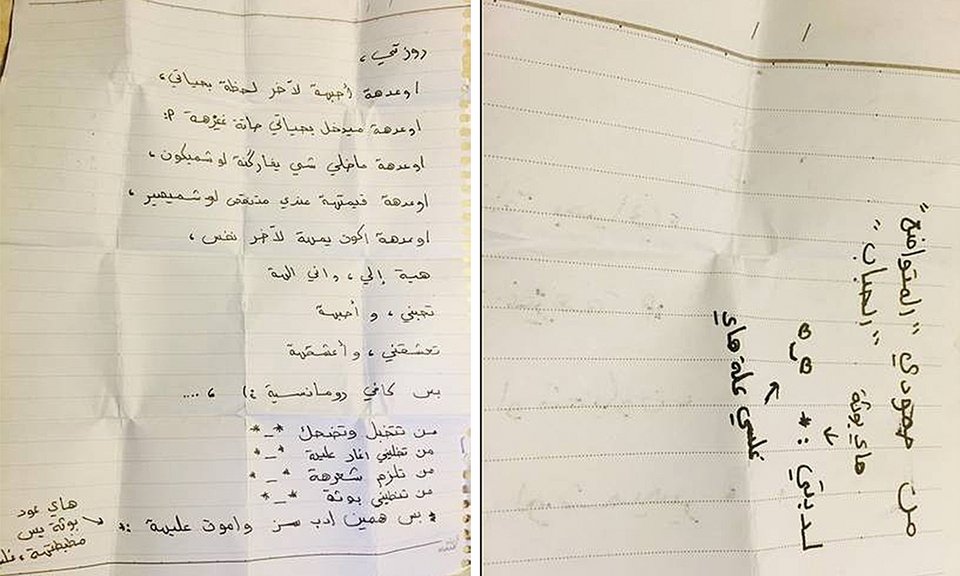 روزتي ،
اوعدهة أحبهة لآخر لحظة بحياتي ،
اوعدهة ميدخل بحياتي حاتة غيرهة :p
اوعدهة ماخلي شي يفاركنة لو شميكون ،
اوعدهة قيمتهة عندي متنقص لو شميصير ،
اوعدهة اكون يمهة لآخر نفس ،
هية إلي ، واني الهة
تحبني ، و أحبهة
تعشقني ، و أعشقهة
بس كافي رومانسية :) ، ....
من تتخبل وتضحك *_*
من تخليني اغار عليهة *_*
من تلزم شعرهة *_*
من تنطيني بوثة *_*
* بس همين ادب سز واموت عليهة :*
هاي عود
بوثة بس
مطبطتهة ،
من حمودي "المتواضع"
"الحباب"
هاي بوثة
لدبتي : *
غلسي علة هاي